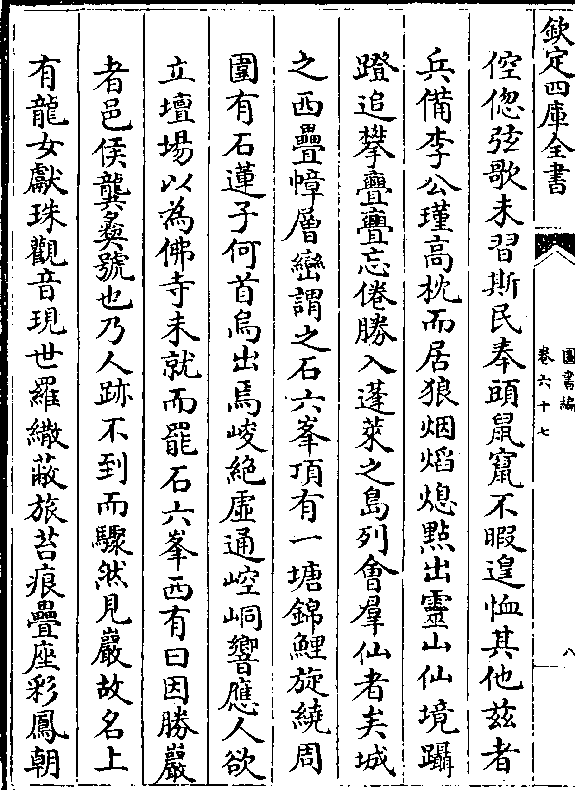 欽定四庫全書
圖書編
卷六十七
八
倥偬弦歌未習斯民奉頭鼠竄不暇遑恤其他茲者
兵備李公瑾高枕而居狼烟焰熄㸃出靈山仙境躡
蹬追攀亹亹忘倦勝入蓬萊之島列會羣仙者矣城
之西疊幛層巒謂之石六峯頂有一塘錦鯉旋繞周
圍有石蓮子何首烏出焉峻絶虛通崆峒響應人欲
立壇場以為佛寺未就而罷石六峯西有曰因勝巖
者邑侯龔彛號也乃人跡不到而驟然見巖故名上
有龍女獻珠觀音現世羅繖蔽旅苔痕疊座彩鳳朝